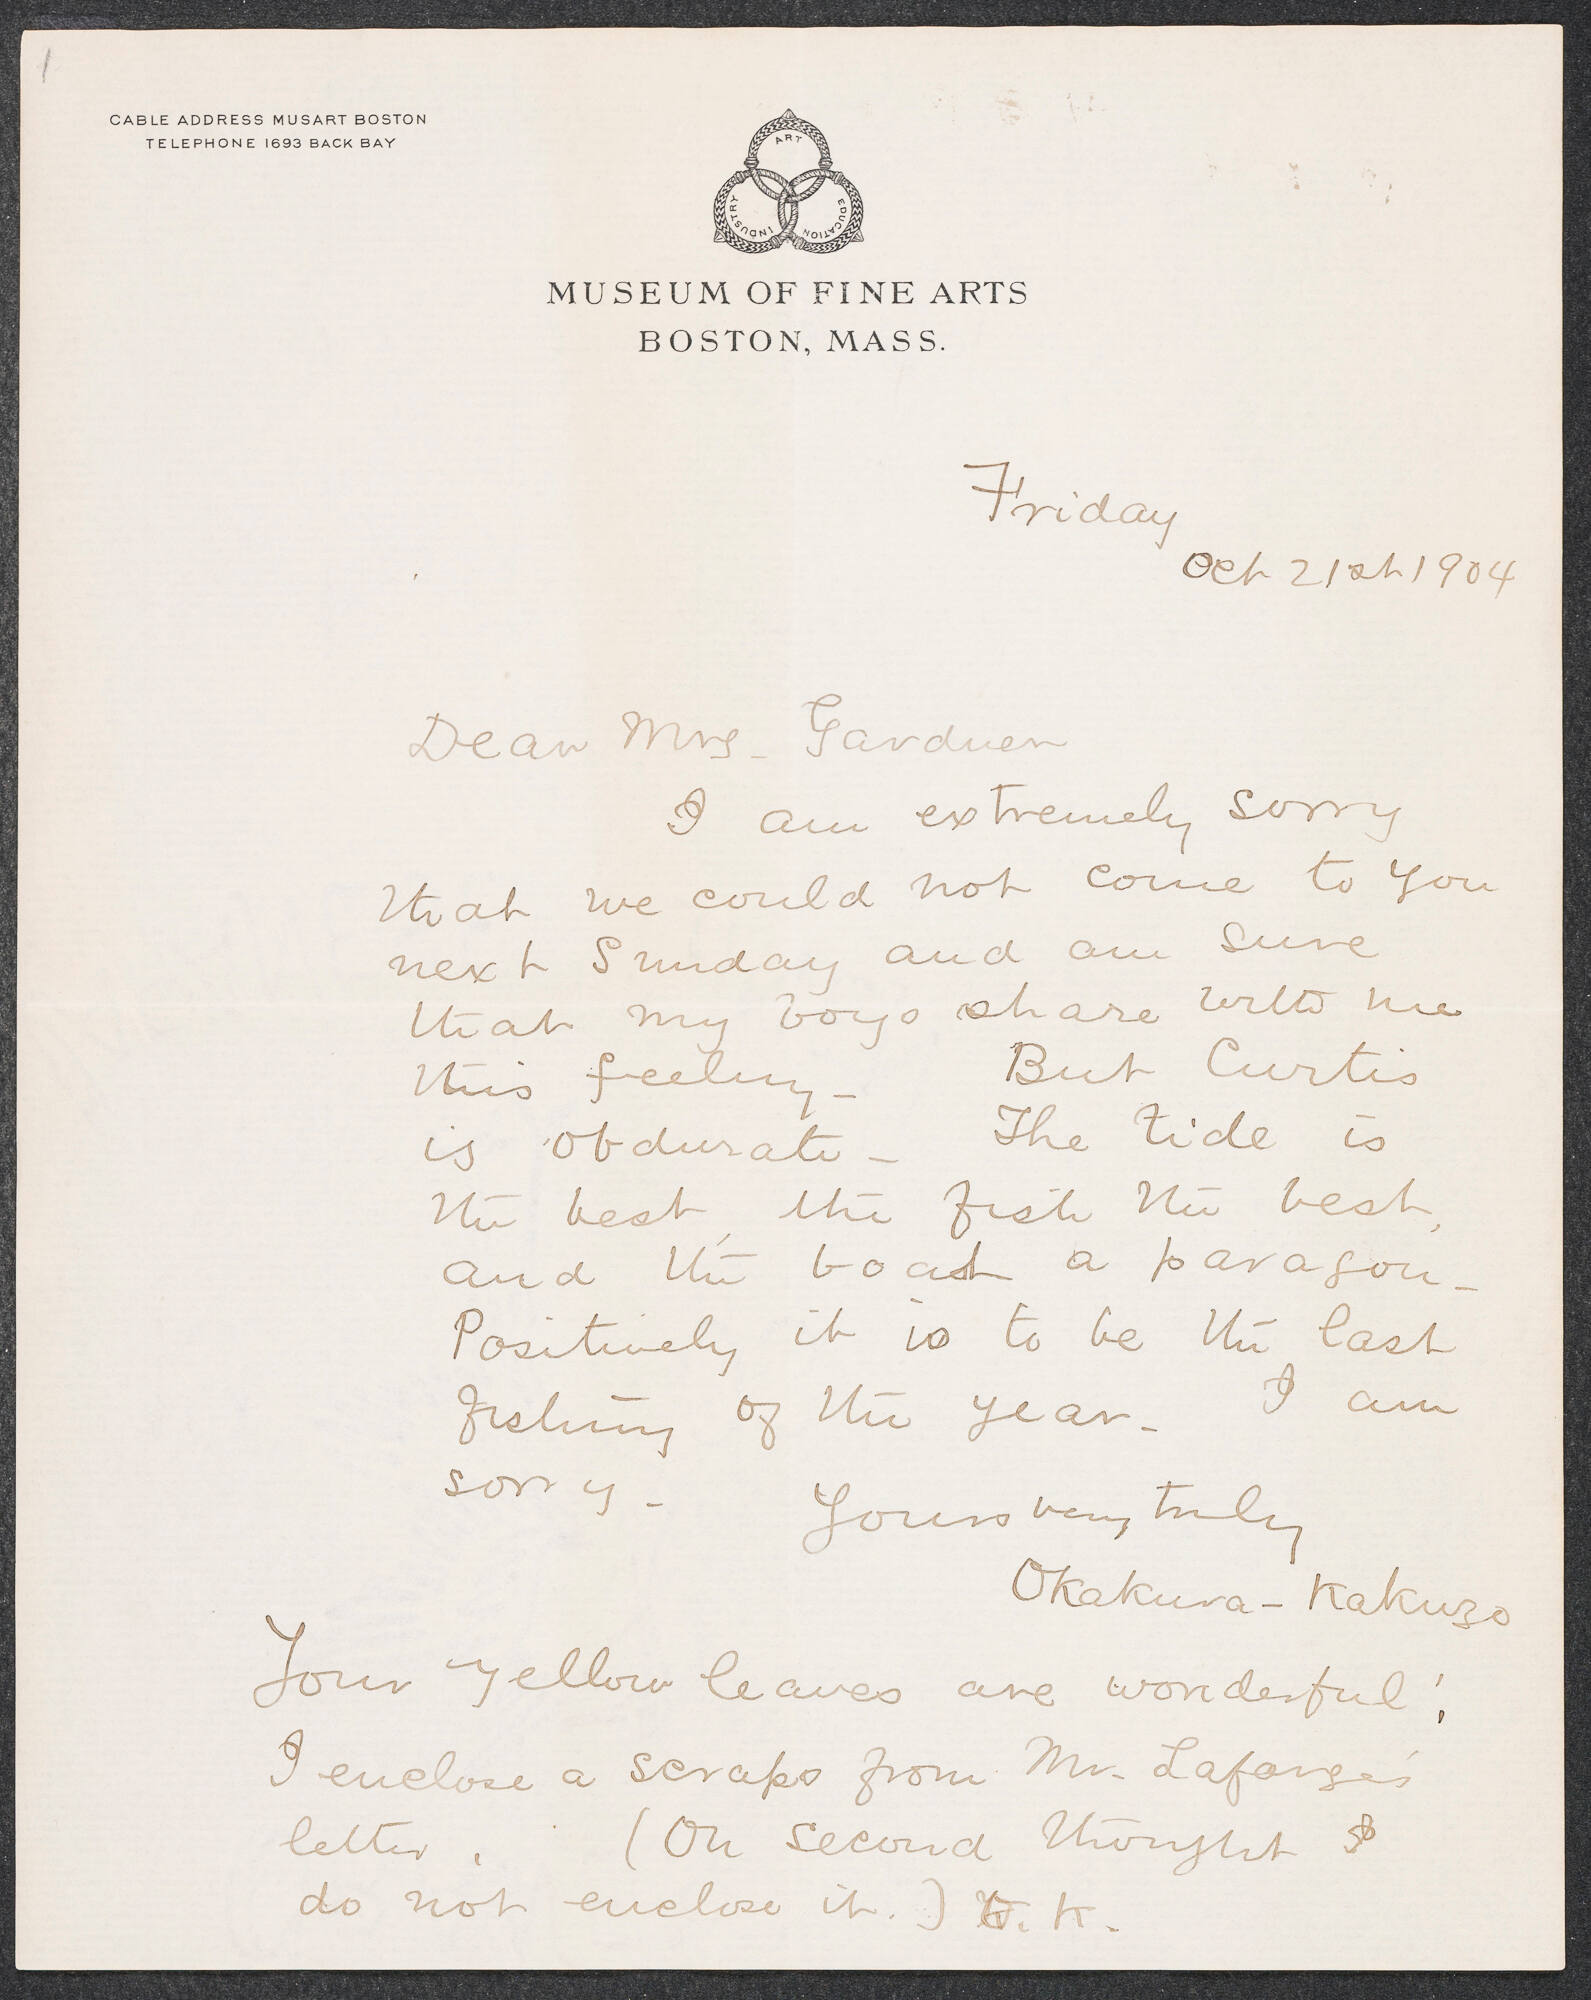 1
CABLE ADDRESS MUSART BOSTON
TELEPHONE 1693 BACK BAY
ART
INDUSTRY
EDUCATION
MUSEUM OF FINE ARTS
BOSTON, MASS.
Friday
Oct 21st 1904
Dear Mrs. Gardner
I am extremely sorry
that we could not come to you
next Sunday and am sure
that my boys share with me
this feeling. But Curtis
is obdurate. The tide is
the best, the fish the best,
and the boat a paragon.
Positively it is to be the last
fishing of the year. I am
sorry.
Yours very truly
Okakura-Kakuzo
Your yellow leaves are wonderful!
I enclose a scraps from Mr. Lafarge's
letter. (On second thought I
do not enclose it.) K.